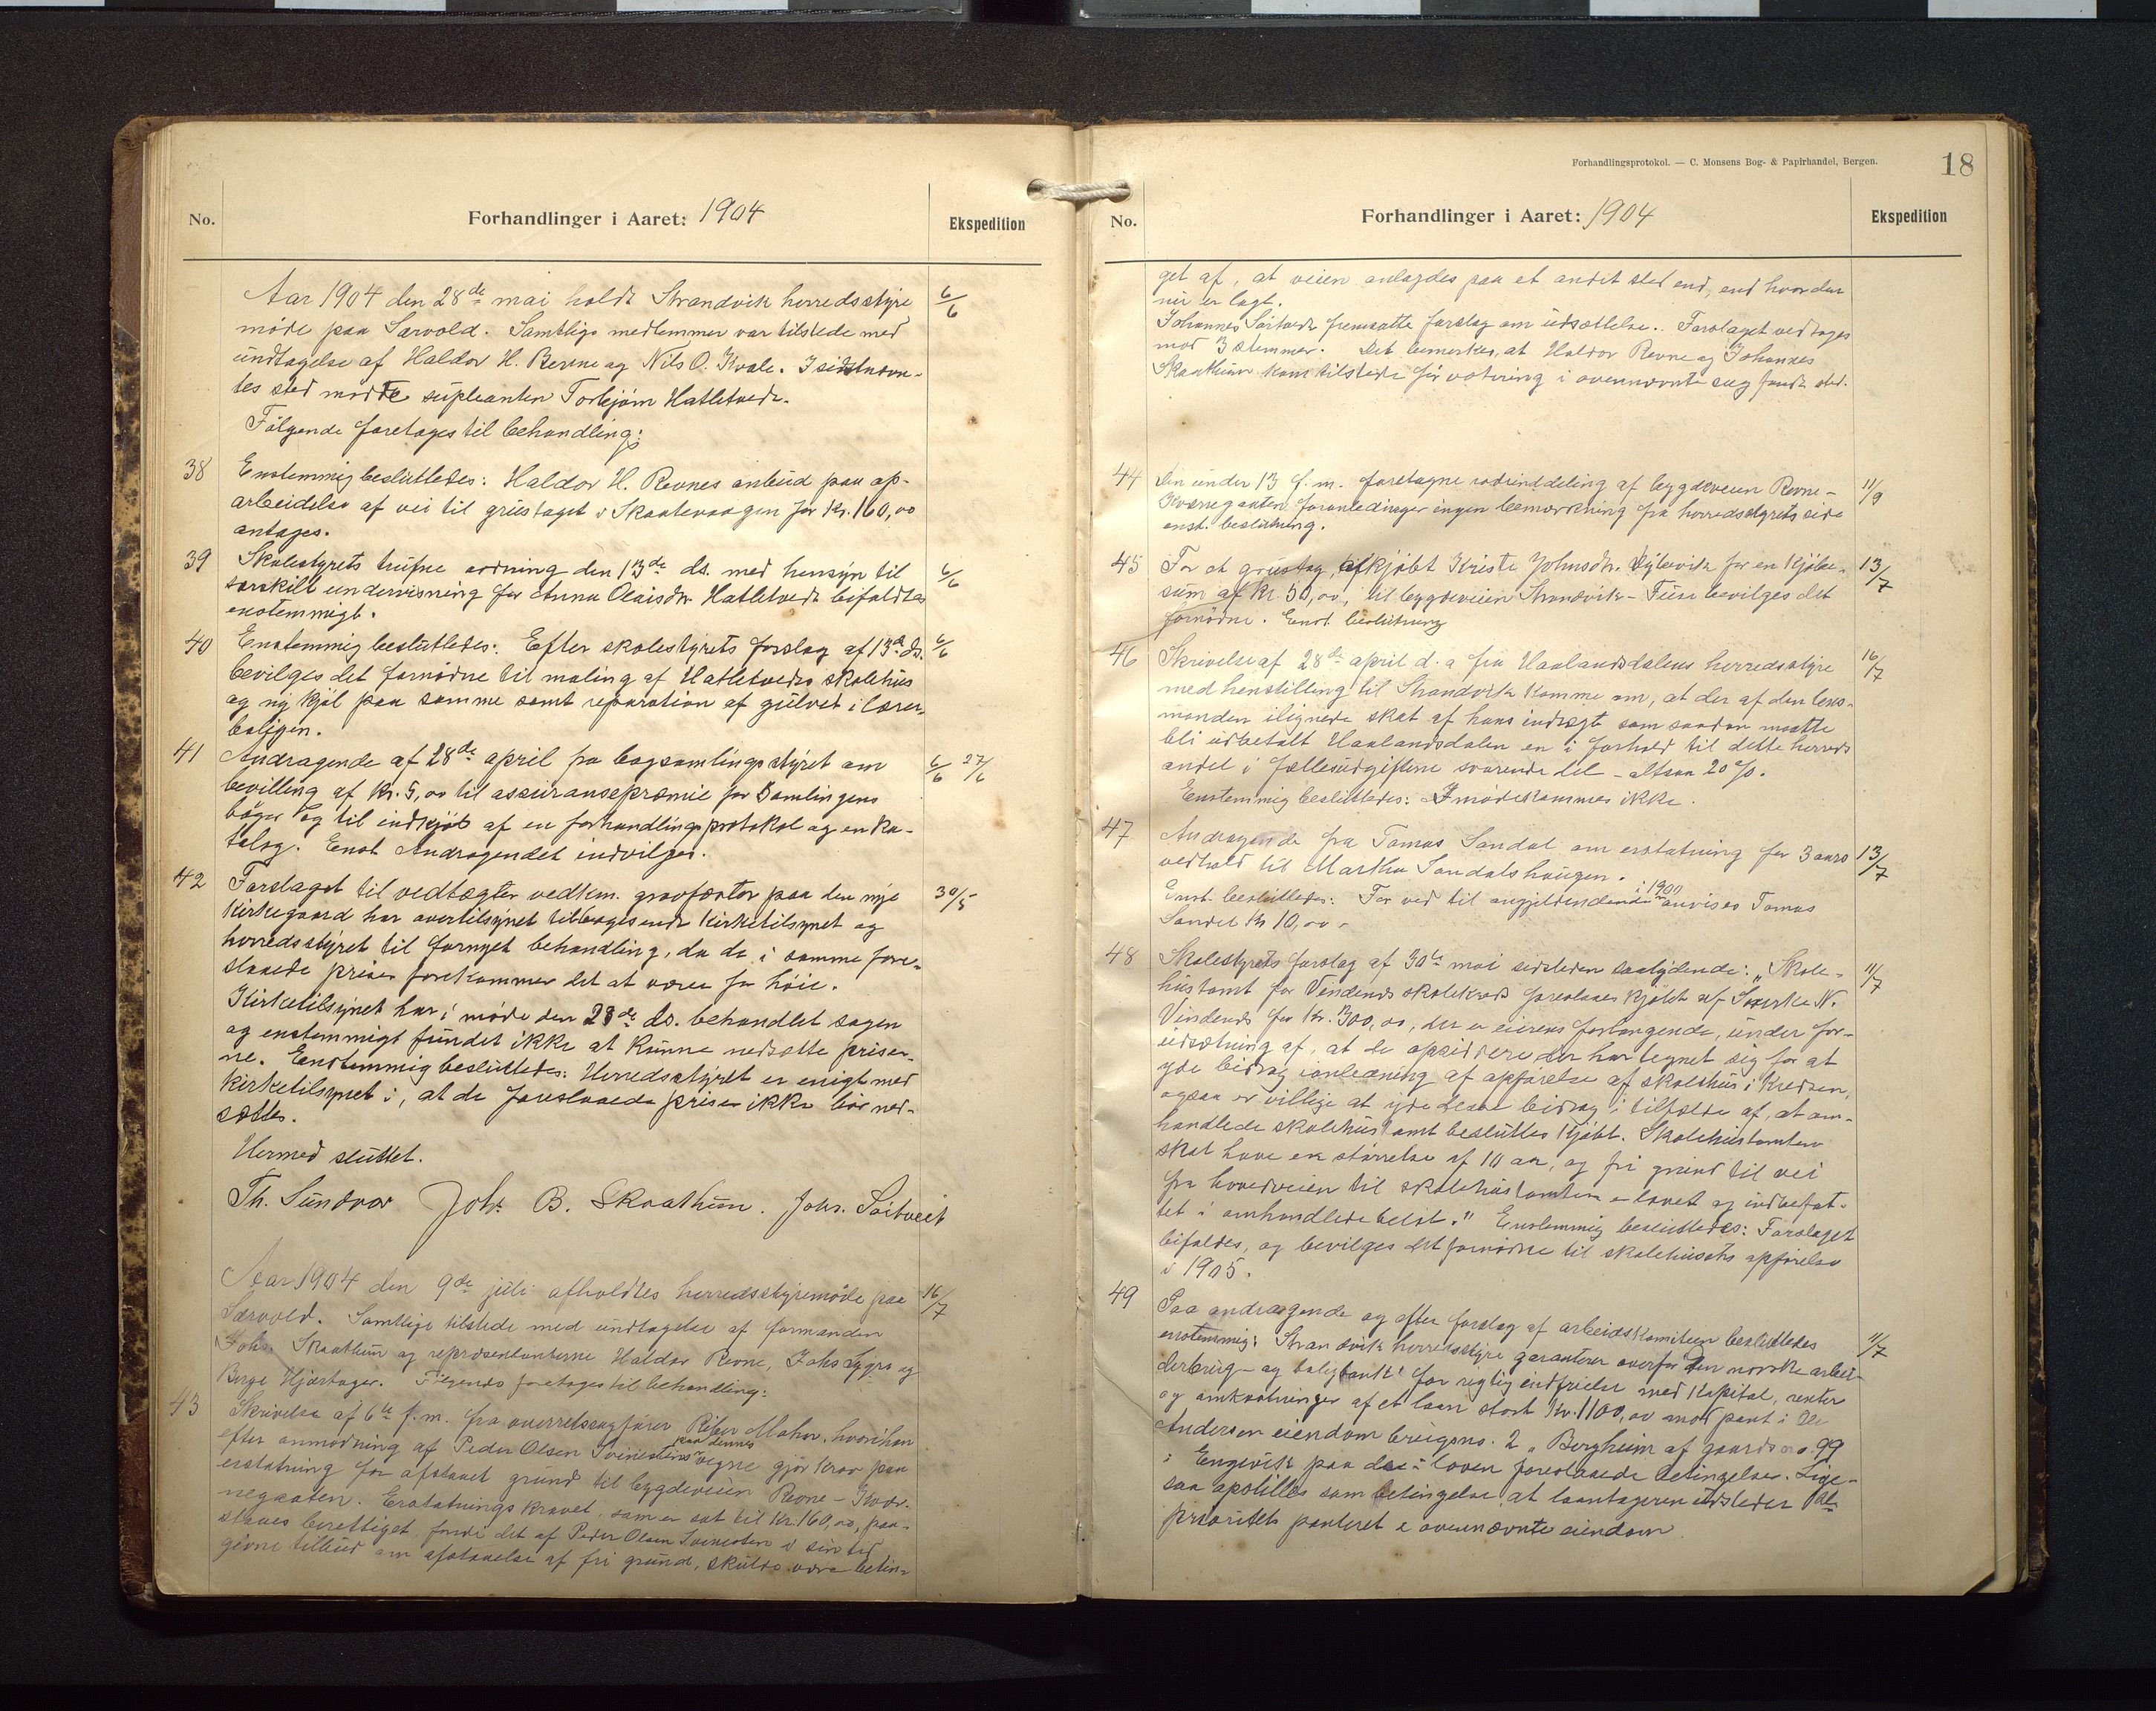 No.
Forhandlinger i Aaret: 1904
Ekspedition
Aar 1904 den 28de mai holdt Strandvik herredsstyre 6/6
møde paa Sævold. Samtlige medlemmer var tilstede med
undtagelse af Haldor H. Revne og Nils O. Kvale. I sidstnævn-
tes sted mødte supleanten Torbjørn Hatletvedt.
Følgende foretages til behandling:
38 Enstemmig besluttedes: Haldor H. Revnes anbud paa op-
arbeidelse af vei til grustaget i Skaatevaagen for Kr. 160,00
antages.
39 Skolestyrets trufne ordning den 13de ds. med hensyn til 6/6
særskilt undervisning for Anna Olaisdtr Hatletvedt bifaldtes
enstemmigt.
40 Enstemmig besluttedes: Efter skolestyrets forslag af 13de ds. 6/6
bevilges det fornødne til maling af Hatletvedts skolehus
og ny kjøl paa samme samt reparation af gulvet i lærer-
boligen.
41 Andragende af 28de april fra bogsamlingsstyret om 6/6 27/6
bevilling af Kr. 5,00 til assuransepræmie for Samlingens
bøger og til indkjøb af en forhandlingsprotokol og en ka-
talog. Enst. Andragendet indvilges.
42 Forslaget til vedtægter vedkm. gravfæster paa den nye 30/5
Kirkegaard har overtilsynet tilbagesendt Kirketilsynet og
herredsstyret til fornyet behandling, da de i samme fore-
slaaede priser forekommer det at være for høie.
Kirketilsynet har i møde den 28de ds. behandlet sagen
og enstemmigt fundet ikke at kunne nedsætte priser-
ne. Enstemmig besluttedes: Herredsstyret er enigt med
Kirketilsynet i, at de foreslaaede priser ikke bør ned-
sættes.
Hermed sluttet.
Th. Sundvor Johs. B. Skaathun. Johs. Søitveit
Aar 1904 den 9de juli afholdtes herredsstyremøde paa 16/7
Sævold. Samtlige tilstede med undtagelse af formanden
Johs. Skaathun og repræsentanterne Haldor Revne, Johs Lygre og
Børge Hjartager. Følgende foretages til behandling:
43 Skrivelse af 6te f.m. fra overretssagfører Riber Mohn, hvori han
efter anmodning af Peder Olsen Tvinesteen paa dennes vegne gjør krav paa
erstatning for afstaaet grund til bygdeveien Revne - Kvær-
negaaten. Erstatningskravet, som er sat til Kr. 160,00, paa-
staaes berettiget, fordi det af Peder Olsen i sin tid
givne tilbud om afstaaelse af fri grund, skulde være betin-
Forhandlingsprotokol. — C. Monsens Bog- & Papirhandel, Bergen.
18
No.
Forhandlinger i Aaret: 1904
Ekspedition
get af, at veien anlagdes paa et andet sted end, end hvor den
nu er lagt.
Johannes Søitvedt fremsatte forslag om udsættelse. Forslaget vedtoges
mod 3 stemmer. Det bemerkes, at Haldor Revne og Johannes
Skaathun kom tilstede før votering i ovennævnte sag fandt sted.
44 Den under 13 f.m. foretagne rodeinddeling af bygdeveien Revne - 11/9
Kværnegaaten foranlediger ingen bemærkning fra herredsstyrets side
enst. beslutning.
45 For et grustag, afkjøbt Kriste Johnsdtr. for en kjøbe- 13/7
sum af Kr. 50,00, til bygdeveien Strandvik - Fuse bevilges det
fornødne. Enst. beslutning
46 Skrivelse af 28de april d.a. fra Haalandsdalens herredsstyre 16/7
med henstilling til Strandvik komme om, at der af den lens-
manden ilignede skat af hans indtægt som saadan maatte
bli udbetalt Haalandsdalen en i forhold til dette herreds
andel i fællesudgifterne svarende del - altsaa 20%.
Enstemmig besluttedes: Imødekommes ikke.
47 Andragende fra Tomas Sandal om erstatning for 3 aars 13/7
vedhold til Martha Sandalshaugen.
Enst. besluttedes: For ved til angjeldendende i 1900 anvises Tomas
Sandal Kr 10,00 -
48 Skolestyrets forslag af 30te mai sidstleden saalydende: „Skole- 11/7
hustomt for Vindenes skolekreds foreslaaes kjøbt af Sjurke N.
Vindenes for Kr. 300,00, der er eierens forlangende, under for-
udsætning af, at de opsiddere der har tegnet sig for at
yde bidrag i anledning af opførelse af skolehus i kredsen,
ogsaa er villige at yde disse bidrag i tilfælde af, at om-
handlede skolehustomt besluttes kjøbt. Skolehustomten
skal have en størrelse af 10 ar, og fri grund til vei
fra hovedveien til skolehustomten er lovet og indbefat-
tet i omhandlede beløb." Enstemmig besluttedes: Forslaget
bifaldes, og bevilges det fornødne til skolehusets opførelse
i 1905.
49 Paa andragende og efter forslag af arbeidskomiteen besluttedes 11/7
enstemmig: Strandvik herredsstyre garanterer overfor den norske arbei-
derbrug- og boligbank for rigtig indfrielse med Kapital, renter
og omkostninger af et laan stort Kr. 1100,00 mod pant i Ole
Andersen eiendom brugsno. 2 „Bergheim af gaardsno. 99
i Engevik paa de i loven foreslaaede betingelser. Lige-
saa opstilles som betingelse, at laantageren udsteder 2den
prioritets panteret i ovennævnte eiendom